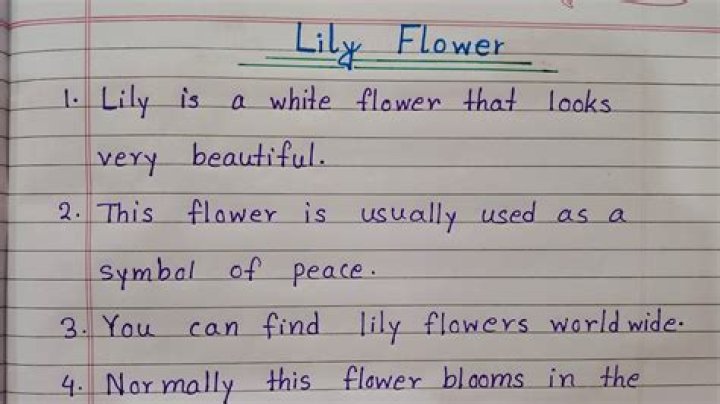 Lily Flower
1. Lily is a white flower that looks
very beautiful.
2. This flower is usually used as a
symbol of peace.
3. You can find lily flowers world wide.
4. Normally this flower blooms in the